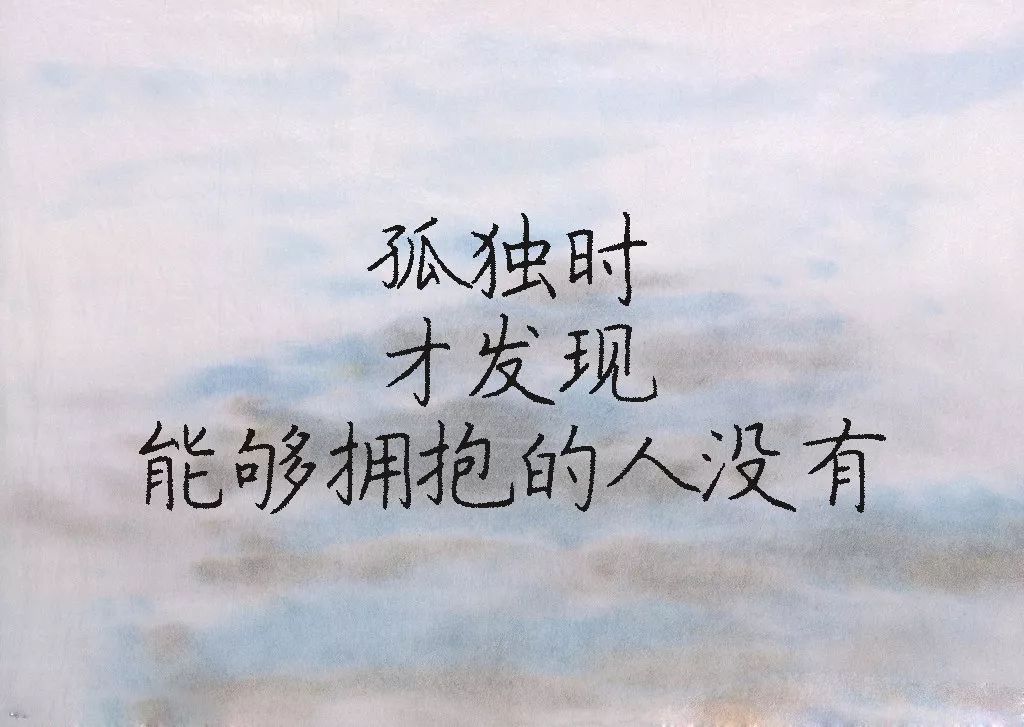 孤独时
才发现
能够拥抱的人没有